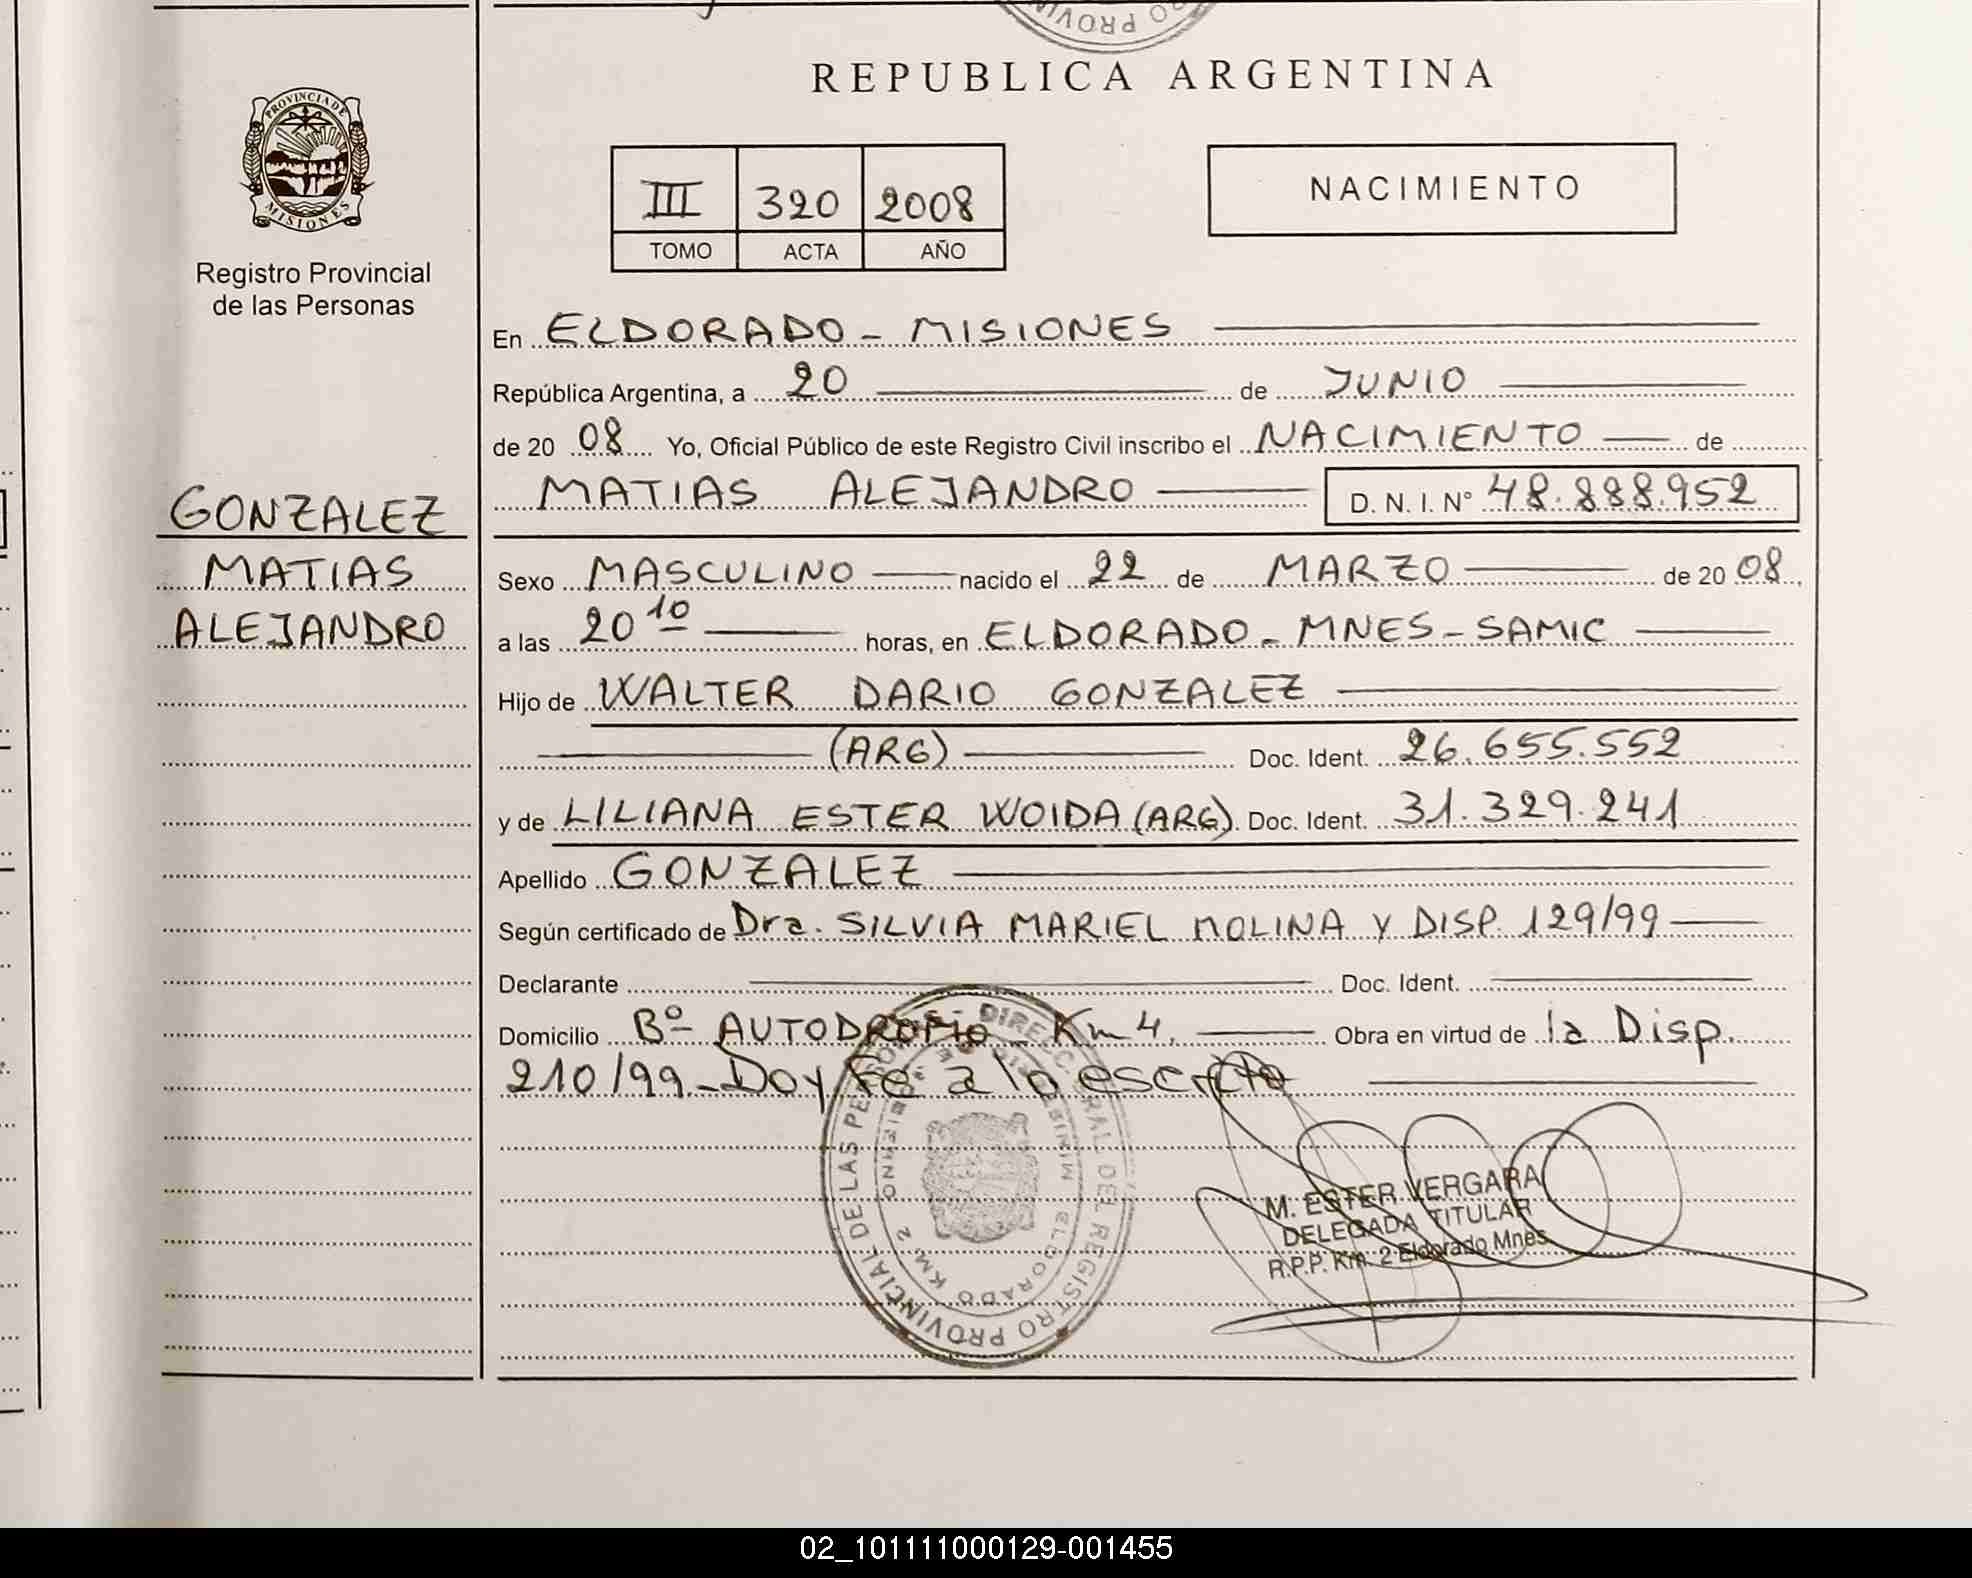 REPUBLICA ARGENTINA
PROVINCIA DE
MISIONES
Registro Provincial
de las Personas
III 320 2008
TOMO ACTA AÑO
NACIMIENTO
GONZALEZ
MATIAS
ALEJANDRO
En ELDORADO - MISIONES
República Argentina, a 20 de JUNIO
de 20 08 Yo, Oficial Público de este Registro Civil inscribo el NACIMIENTO de
MATIAS ALEJANDRO D. N. I. Nº 48.888.952
Sexo MASCULINO nacido el 22 de MARZO de 20 08,
a las 20 10 horas, en ELDORADO - MNES - SAMIC
Hijo de WALTER DARIO GONZALEZ
(ARG) Doc. Ident. 26.655.552
y de LILIANA ESTER WOIDA (ARG). Doc. Ident. 31.329.241
Apellido GONZALEZ
Según certificado de Dra. SILVIA MARIEL MOLINA Y DISP. 129/99
Declarante Doc. Ident.
Domicilio Bº AUTODROMO Km 4, Obra en virtud de la Disp.
210/99 - Doy fe a lo escrito
M. ESTER VERGARA
DELEGADA TITULAR
R.P.P. Km. 2 Eldorado Mnes
REGISTRO PROVINCIAL DE LAS PERSONAS
ELDORADO KM. 2
02_101111000129-001455